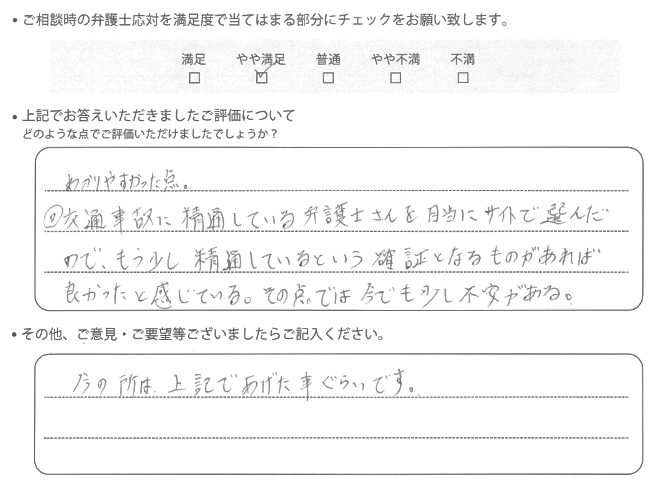 • ご相談時の弁護士応対を満足度で当てはまる部分にチェックをお願い致します。
満足 やや満足 普通 やや不満 不満
□ ☑ □ □ □
• 上記でお答えいただきましたご評価について
どのような点でご評価いただけましたでしょうか？
わかりやすかった点。
交通事故に精通している弁護士さんを目当にサイトで選んだ
ので、もう少し精通しているという確証となるものがあれば
良かったと感じている。その点では今でも少し不安がある。
• その他、ご意見・ご要望等ございましたらご記入ください。
今の所は、上記であげた事ぐらいです。